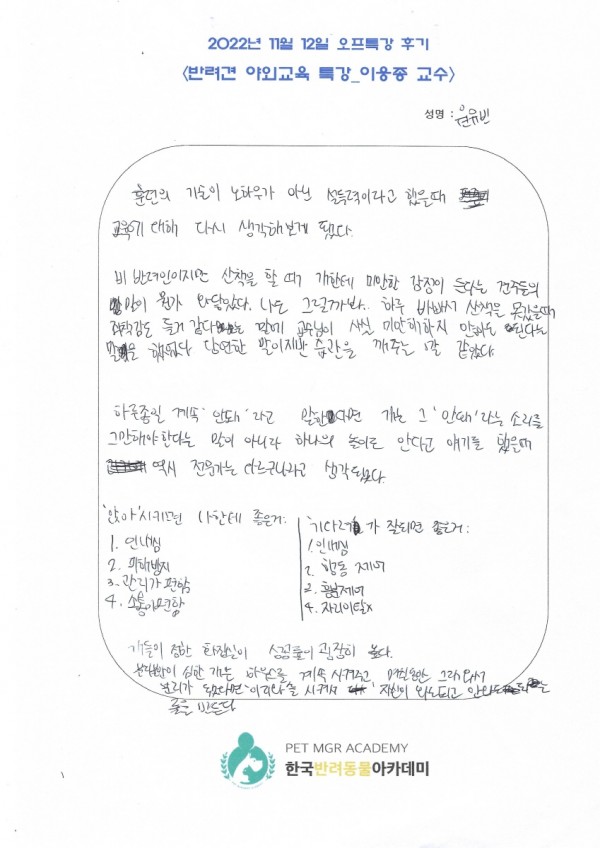 2022년 11월 12일 오프특강 후기
<반려견 야외교육 특강_이웅종 교수>
성명 : 윤유빈
훈련의 기술이 노하우가 아닌 설득력이라고 했을때
교육에 대해 다시 생각해보게 됬다.
비 반려인이지만 산책을 할 때 개한테 미안한 감정이 든다는 견주들의
말이 뭔가 와닿았다. 나도 그럴까봐.. 하루 바빠서 산책을 못갔을때
죄책감도 들거 같다 는 말에 교수님이 사실 미안해하지 안아도 된다는
말을 해줬다 당연한 말이지만 습관을 깨주는 말 같았다.
하루종일 계속 '안돼' 라고 말한다면 개는 그 '안돼' 라는 소리를
그만해야한다는 말이 아니라 하나의 놀이로 안다고 얘기를 했을때
역시 전문가는 다르구나라고 생각됬다.
'앉아' 시키면 나한테 좋은거:
1. 인내심
2. 피해방지
3. 관리가 편함
4. 소통이 편함
'기다려' 가 잘되면 좋은거:
1. 인내심
2. 행동 제어
3. 흥분제어
4. 자리이탈x
개들이 정한 화장실이 성공률이 굉장히 높다.
심한 개는 하우스를 계속 시켜주고
분리가 됬다면 이리와를 시켜서
룰을 만든다
PET MGR ACADEMY
한국반려동물아카데미